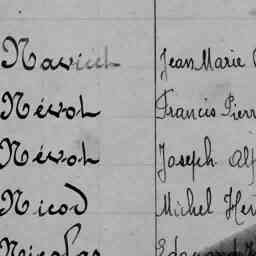 Naviel Jean Marie
Névot Francis Pierr
Névot Joseph Alf
Nicod Michel Her
Nicolas Edouard